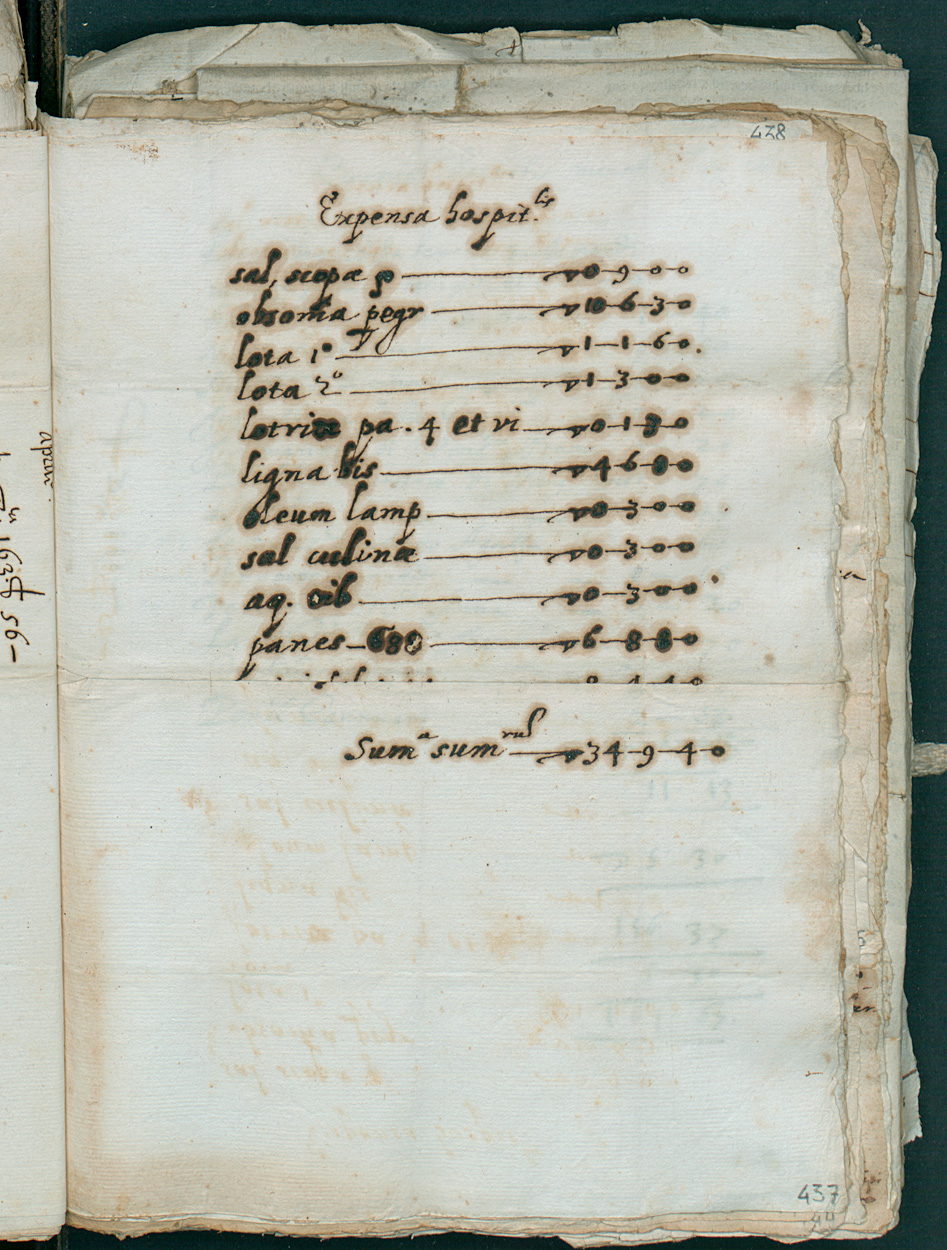 438
Expensa hospit.lis
sal, scopæ — ▽0–9–0–0
obsonia pegr — ▽10–6–3–0
lota 1o — ▽1–1–6–0.
lota 2o — ▽1–3–0–0
lotrix pa. 4 et vi — ▽0–1–8–0
ligna bis — ▽4–6–8–0
oleum lamp — ▽0–3–0–0
sal culinæ — ▽0–3–0–0
aq. — ▽0–3–0–0
panes — 680 — ▽6–8–8–0
Suma sumrum — ▽34–9–4–0
437